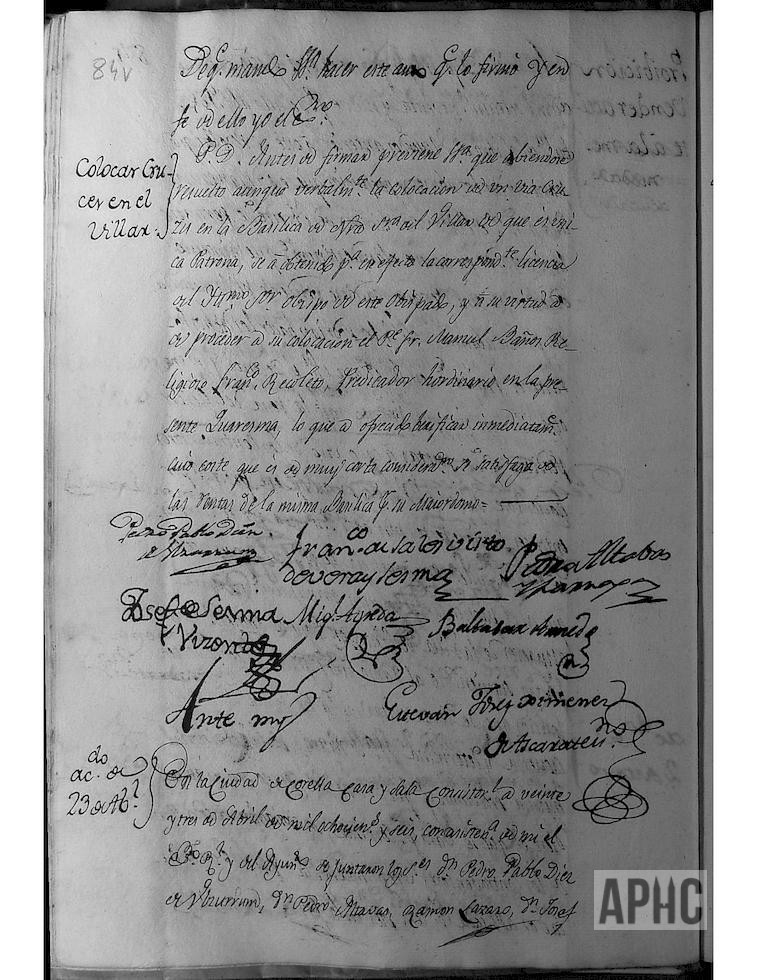 84v
De q.e mandó S.S.ª hacer este auto q.e lo firmó y en
fe de ello yo el Es.no
Colocar Cru-
ces en el
Villar.
P.D. Antes de firmar previene S.S.ª que abiendose
resuelto aunque verbalm.te la colocacion de un via Cru-
zis en la Basilica de Ntra Sra del Villar de que es uni-
ca Patrona, se a obtenido p.ª en efecto la correspond.te licencia
del Yltmo Sor Obispo de este Obispado, y a su virtud a
de proceder a su colocacion el P.e fr. Manuel Baños Re-
ligioso Fran.co Recoleto, Predicador hordinario en la pre-
sente Quaresma, lo que a ofrecido berificar inmediatam.e
cuio coste que es de muy corta considera.on se satisfaga de
las Rentas de la misma Basilica p.r su Maiordomo=
Pedro Pablo Diez
de Ulzurrun
Fran.co de Sales Virto
de Vera y Sesma
Pedro Altabas
Josef de Sesma
y Vizcondo
Mig.l Aynda
Baltasar
Ante my
Estevan Josef Ximenez
de Ascarate es.no
ac.do de
23 de Ab.l
En la Ciudad de Corella Casa y Sala Consistor.l a veinte
y tres de Abril de mil ochocien.s y seis, con asisten.a de mi el
Es.no R.l y del Ayun.to se juntaron los S.res D.n Pedro Pablo Diez
de Ulzurrun, D.n Pedro Altavas, Ramon Lazaro, D.n Josef
APHC